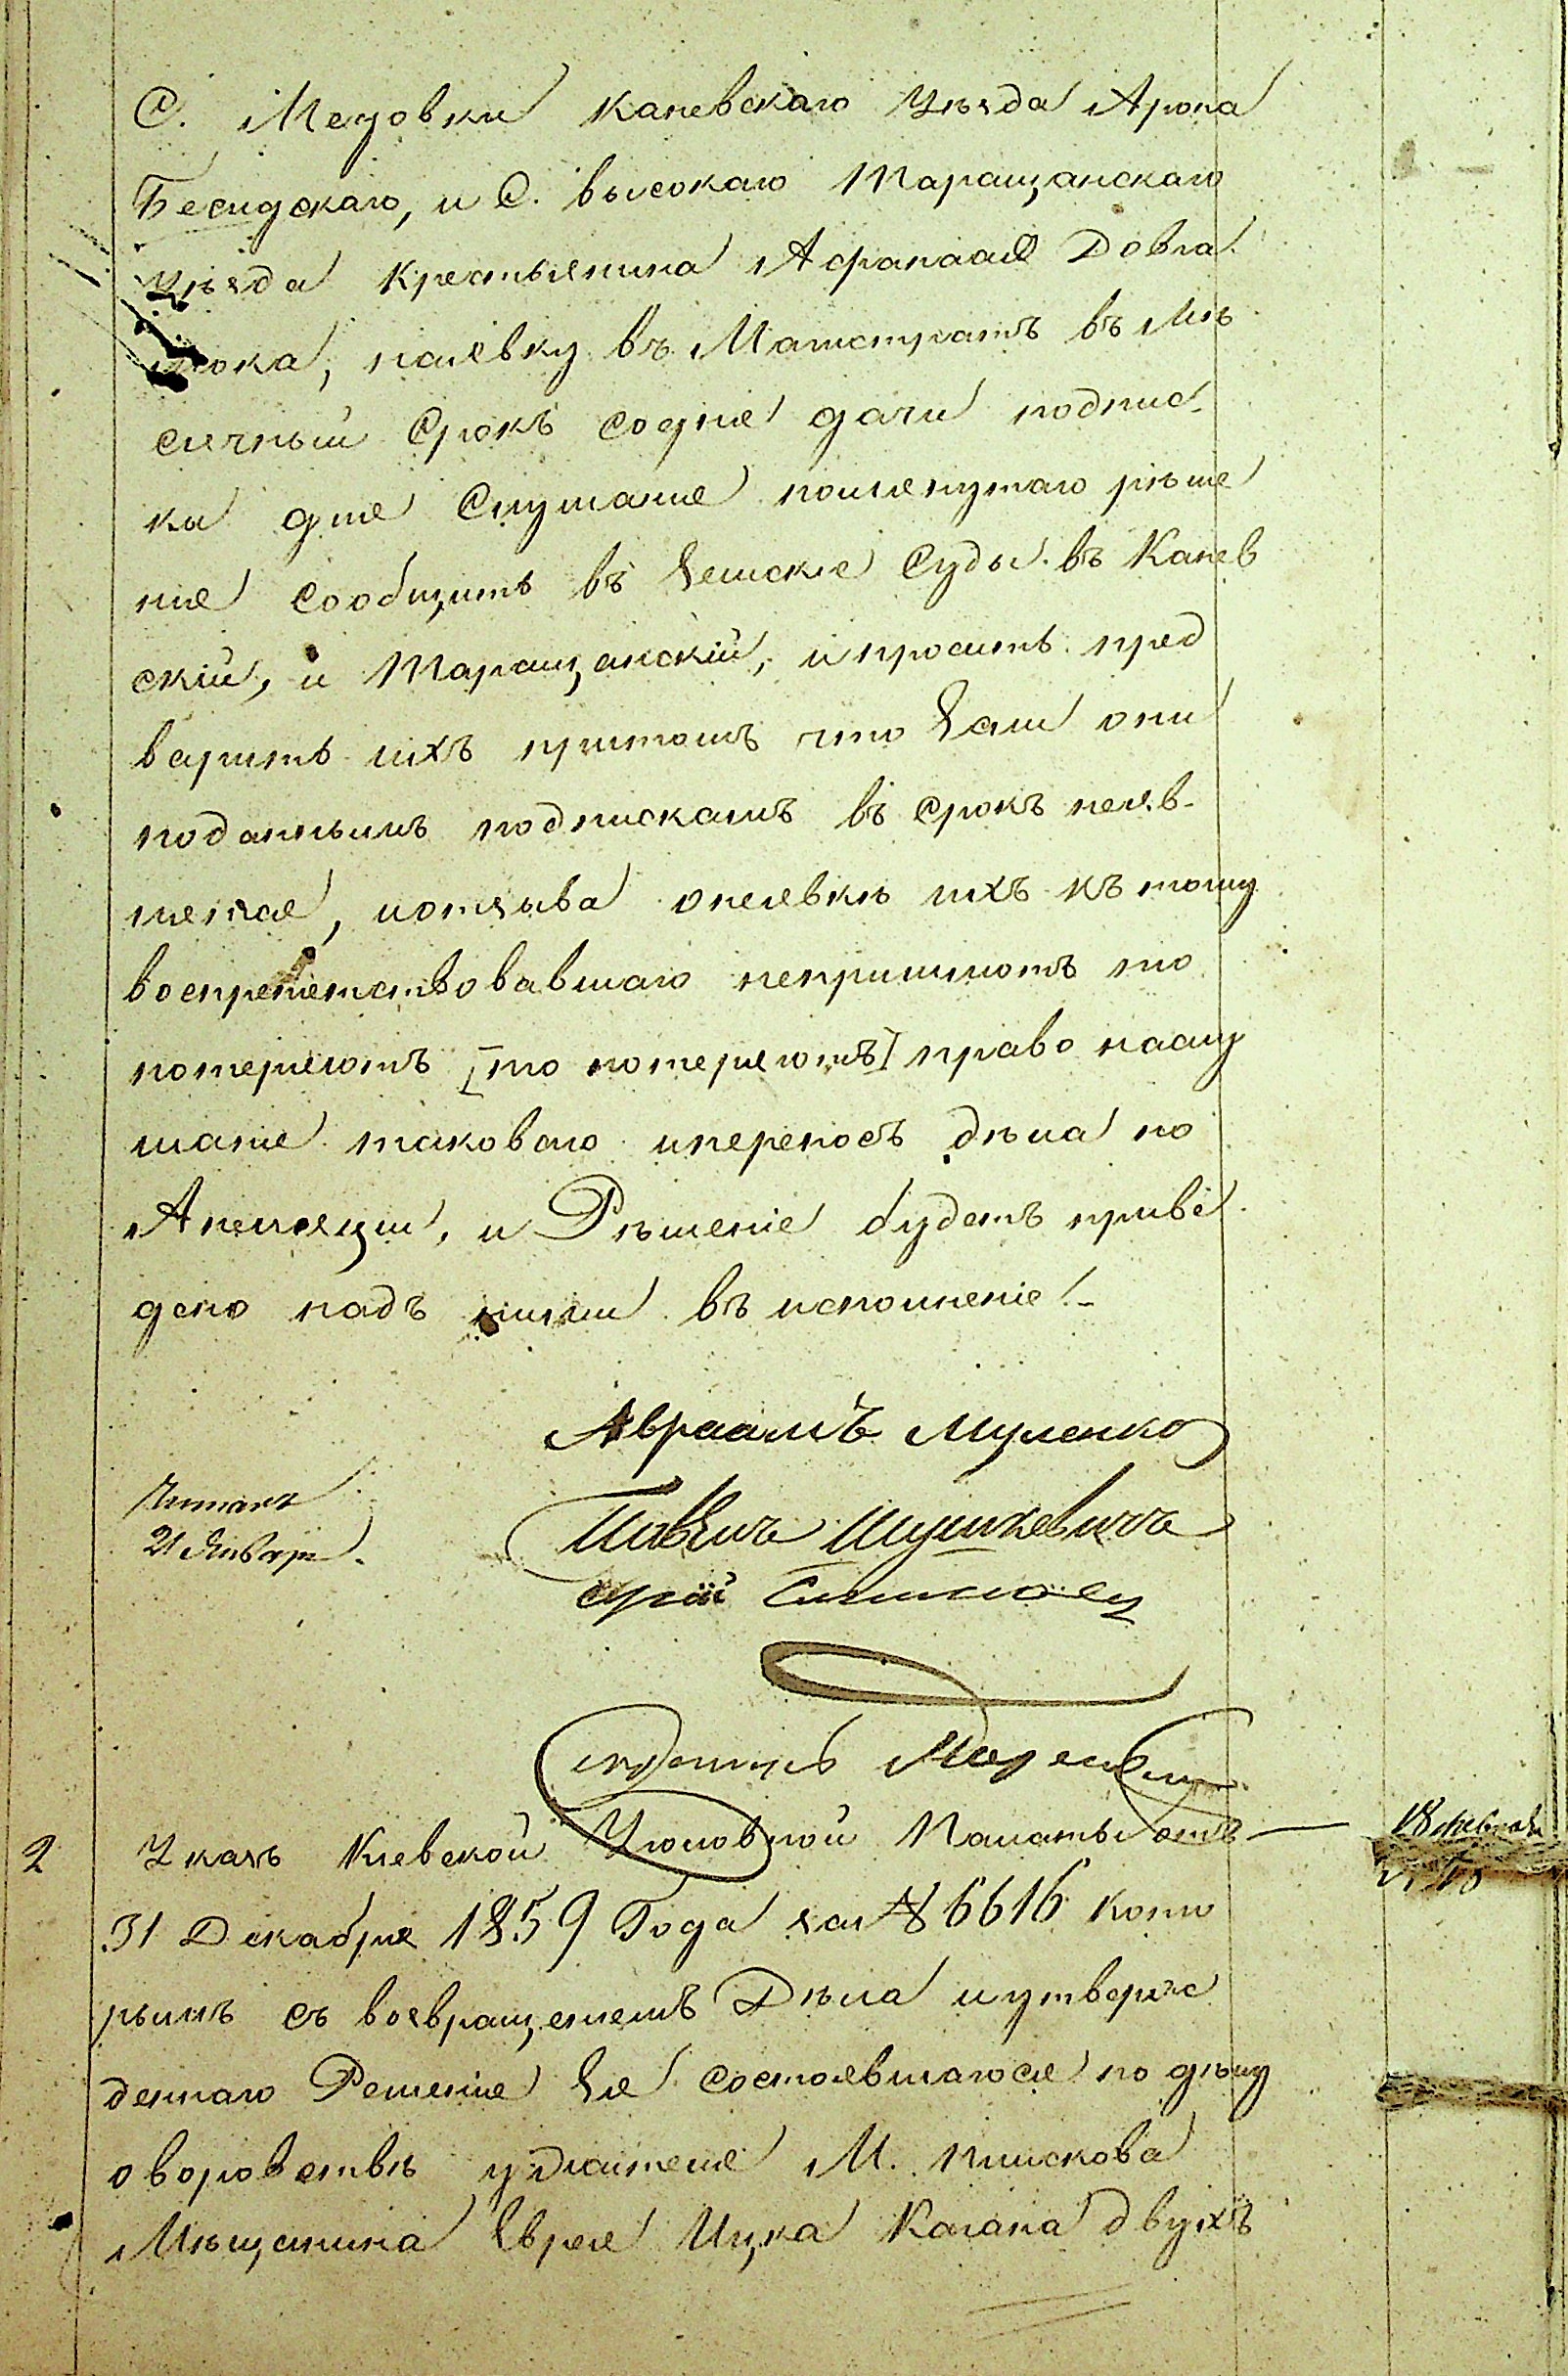 С. Медовки Каневскаго уѣзда Арона
Бесидскаго, и С. высокаго Таращанскаго
уѣзда крестьянина Афанасія Довга
люка, наявку въ Магистратъ въ мѣ
сячный срокъ содня дачи подпис
ки для слушанія помянутаго рѣше
нія сообщить въ Земскіе Суды въ Канев
скій, и Таращанскій, и просить пред
варить ихъ притомъ что Если они
поданнымъ подпискамъ въ срокъ неяв-
тся, иотзыва онеявкѣ ихъ къ тому
воспрепятствовавшаго непришлютъ то
потеряютъ [то потеряютъ] право наслу
шаніе таковаго ипереносъ дѣла по
Апеляции, и Рѣшеніе будетъ приве
дено надъ ними въ исполненіе.-
Авраамъ
Читалъ
21 Января
2 Указъ Киевской Уголовной Палаты отъ
31 Декабря 1859 Года за № 6616 кото
рымъ съ возвращеніемъ Дѣла иутверж
деннаго Решенія Ея состоявшагося по дѣлу
оворовствѣ ужителя М. Пискова
Мѣщанина Еврея Ицка Кагана двухъ